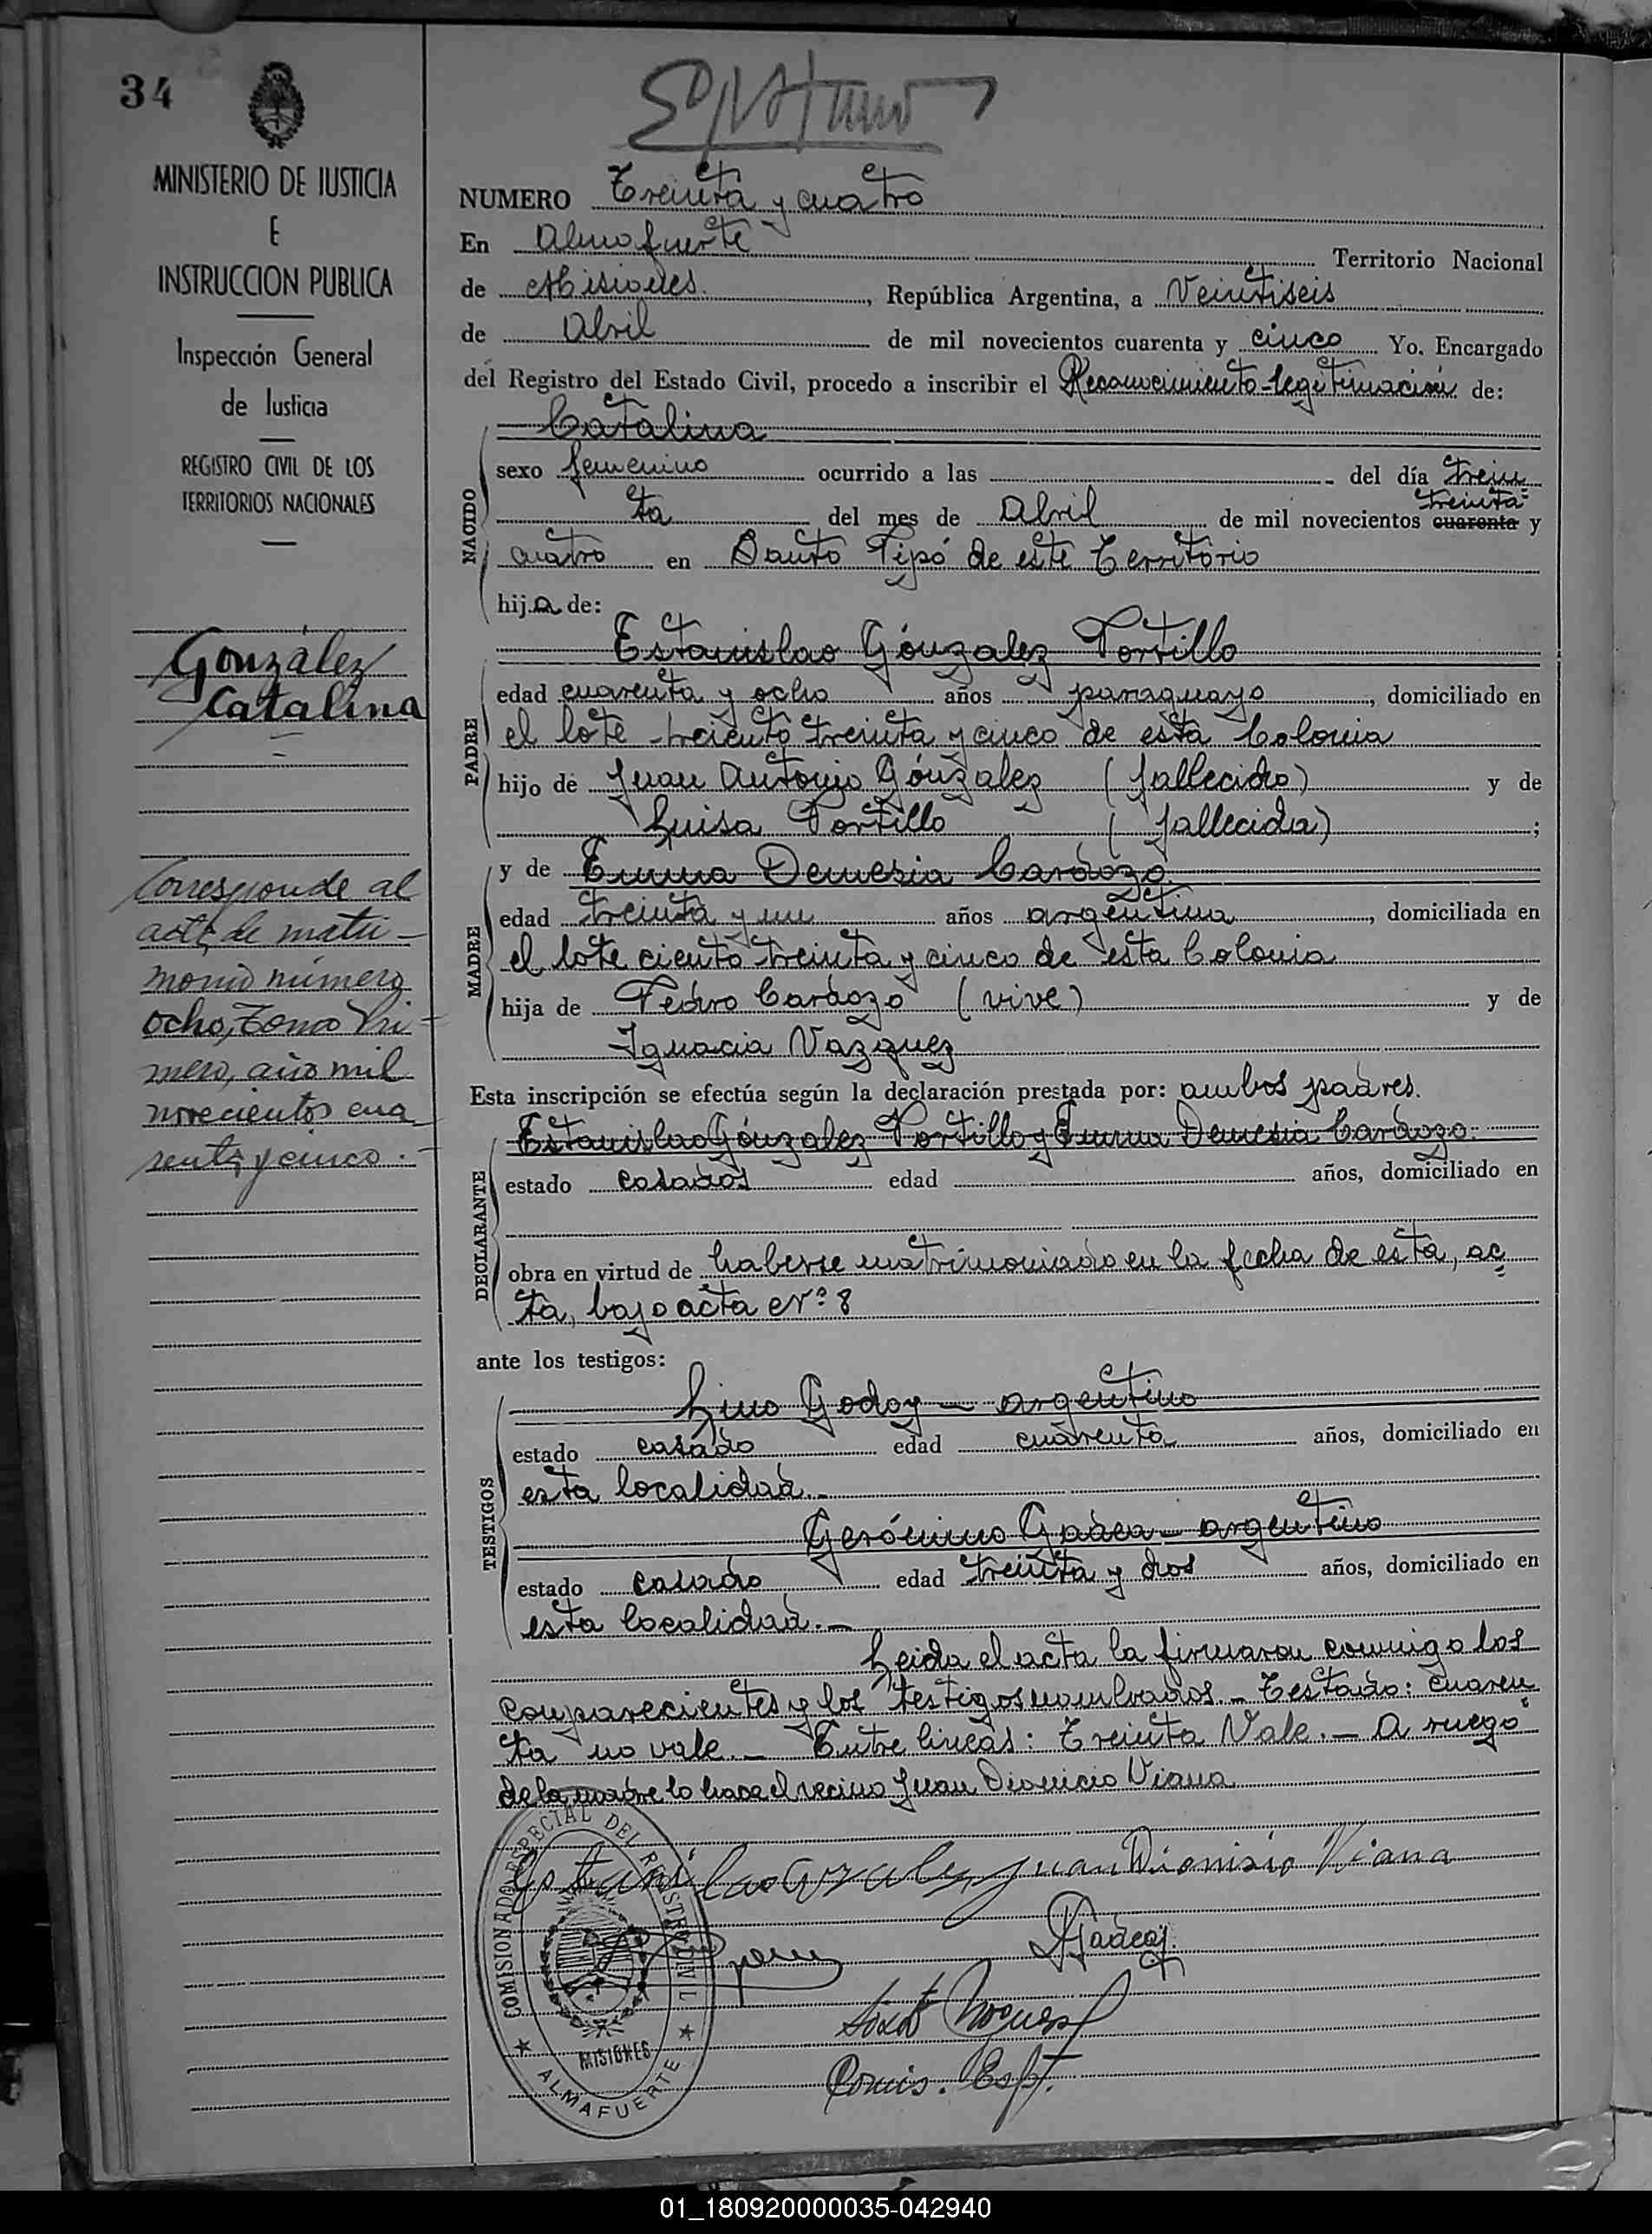 34
MINISTERIO DE JUSTICIA
E
INSTRUCCION PUBLICA
Inspección General
de Justicia
REGISTRO CIVIL DE LOS
TERRITORIOS NACIONALES
González
Catalina
Corresponde al
acta de matri-
monio número
ocho, Tomo Pri-
mero, año mil
novecientos cua
renta y cinco.-
NUMERO Treinta y cuatro
En Almafuerte Territorio Nacional
de Misiones, República Argentina, a Veintiseis
de Abril de mil novecientos cuarenta y cinco Yo, Encargado
del Registro del Estado Civil, procedo a inscribir el Reconocimiento-legitimación de:
Catalina
NACIDO
sexo femenino ocurrido a las del día trein
treinta
ta del mes de Abril de mil novecientos cuarenta y
cuatro en Santo Pipó de este Territorio
hija de:
PADRE
Estanislao Gónzalez Portillo
edad cuarenta y ocho años paraguayo, domiciliado en
el lote ciento treinta y cinco de esta Colonia
hijo de Juan Antonio Gónzalez (fallecido) y de
Luisa Portillo (fallecida);
MADRE
y de Emma Demesia Cardozo
edad treinta y un años argentina, domiciliada en
el lote ciento treinta y cinco de esta Colonia
hija de Pedro Cardozo (vive) y de
Ignacia Vazquez
Esta inscripción se efectúa según la declaración prestada por: ambos padres.
DECLARANTE
Estanislao Gónzalez Portillo y Emma Demesia Cardozo.
estado casados edad años, domiciliado en
obra en virtud de haberse matrimoniado en la fecha de esta, ac
ta, bajo acta Nº 8
ante los testigos:
TESTIGOS
Lino Godoy - argentino
estado casado edad cuarenta años, domiciliado en
esta localidad.-
Gerónimo Gadea - argentino
estado casado edad treinta y dos años, domiciliado en
esta localidad.-
Leida el acta la firmaron conmigo los
comparecientes y los testigos nombrados - Testado: cuaren
ta no vale.- Entre lineas: Treinta Vale.- A ruego
de la madre lo hace el vecino Juan Dionicio Viana
Estanislao Gonzalez Juan Dionisio Viana
Gadea
Comis. Esp.
COMISIONADO ESPECIAL DEL REGISTRO CIVIL
MISIONES
ALMAFUERTE
01_180920000035-042940